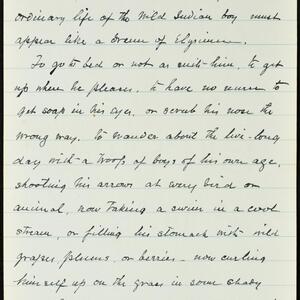 ordinary life of the Wild Indian boy must
appear like a dream of Elysium.
To go to bed or not as suits him, to get
up when he pleases, to have no nurse to
get soap in his eyes, or scrub his nose the
wrong way. To wander about the live-long
day with a troop of boys of his own age,
shooting his arrows at every bird or
animal, now taking a swim in a cool
stream, or filling his stomach with wild
grapes, plums, or berries - now curling
himself up on the grass in some shady